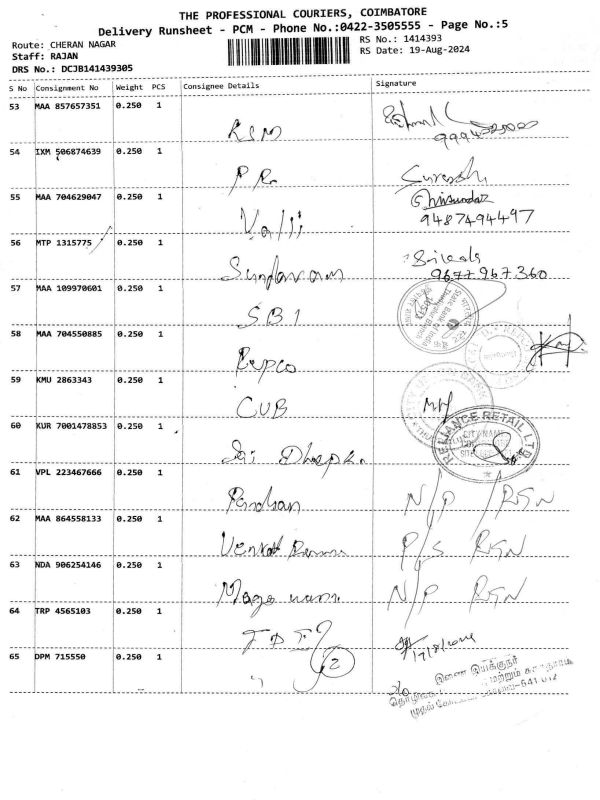 THE PROFESSIONAL COURIERS, COIMBATORE
Delivery Runsheet - PCM - Phone No.:0422-3505555 - Page No.:5
Route: CHERAN NAGAR
RS No.: 1414393
Staff: RAJAN
RS Date: 19-Aug-2024
DRS No.: DCJB141439305
S No Consignment No Weight PCS Consignee Details Signature
53 MAA 857657351 0.250 1
RSM
54 IXM 506874639 0.250 1
PR Suresh
55 MAA 704629047 0.250 1
Valli 9487494497
56 MTP 1315775 0.250 1
Sundaram 9677967360
57 MAA 109970601 0.250 1
SBI State Bank of India
58 MAA 704550885 0.250 1
Repco
59 KMU 2863343 0.250 1
CUB
60 KUR 7001478853 0.250 1
RELIANCE RETAIL LTD
Sri
61 VPL 223467666 0.250 1
N/P / RSN
62 MAA 864558133 0.250 1
Venkat P/S RSN
63 NDA 906254146 0.250 1
N/P RSN
64 TRP 4565103 0.250 1
65 DPM 715550 0.250 1 2
இணை இயக்குநர்